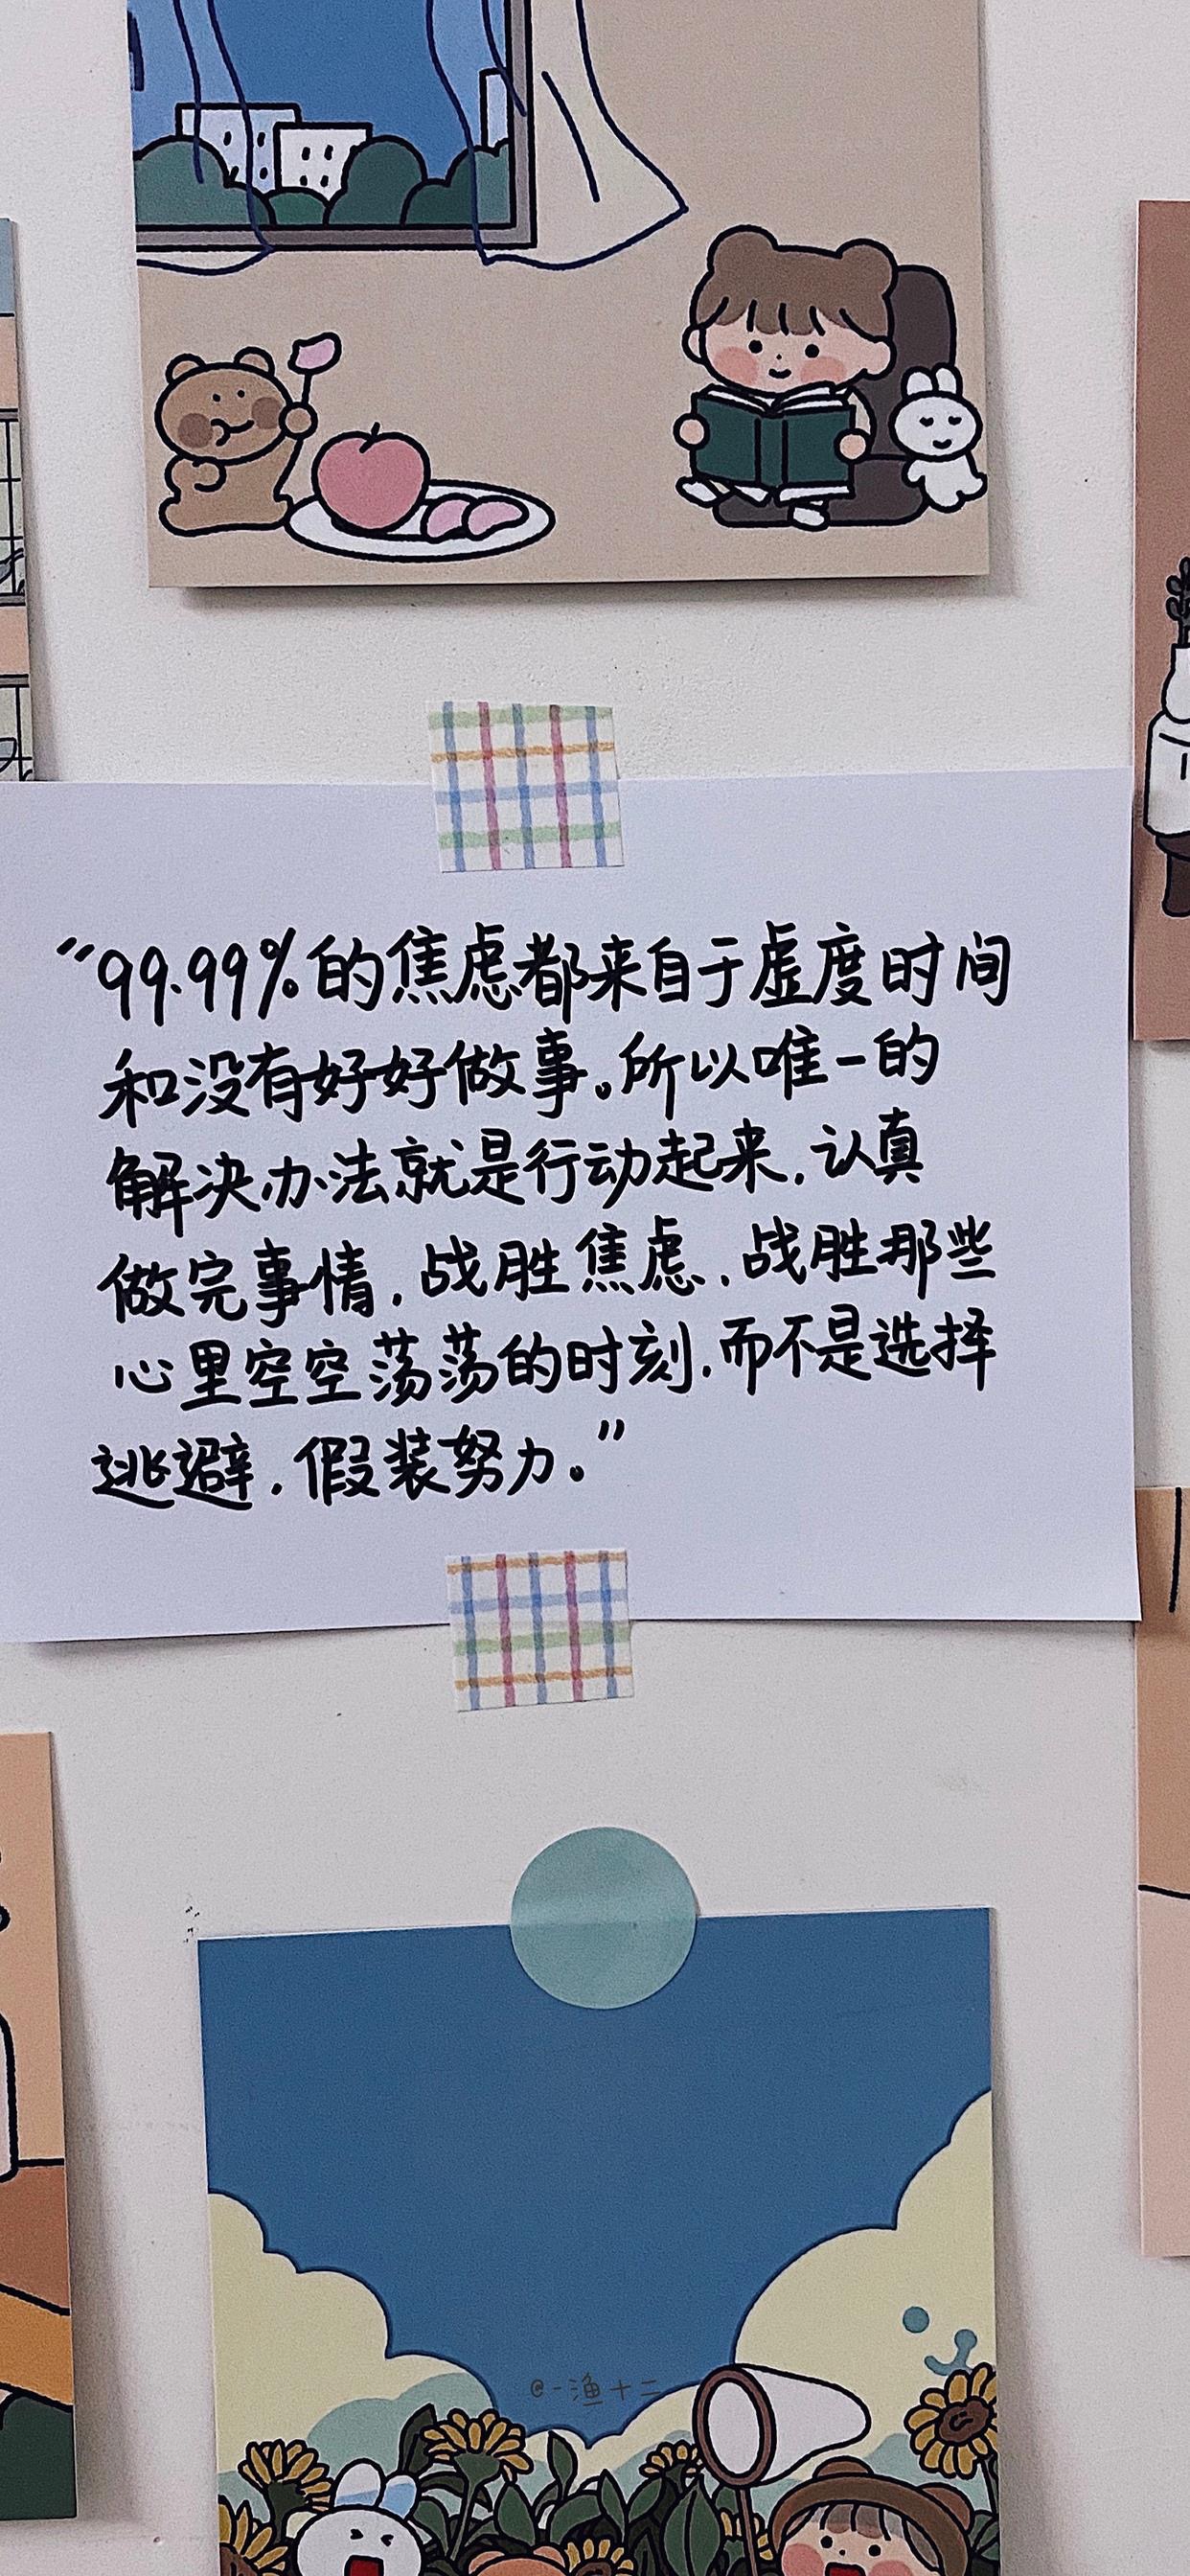 “99.99%的焦虑都来自于虚度时间
和没有好好做事。所以唯一的
解决办法就是行动起来,认真
做完事情,战胜焦虑,战胜那些
心里空空荡荡的时刻,而不是选择
逃避,假装努力。”
@一渔十二